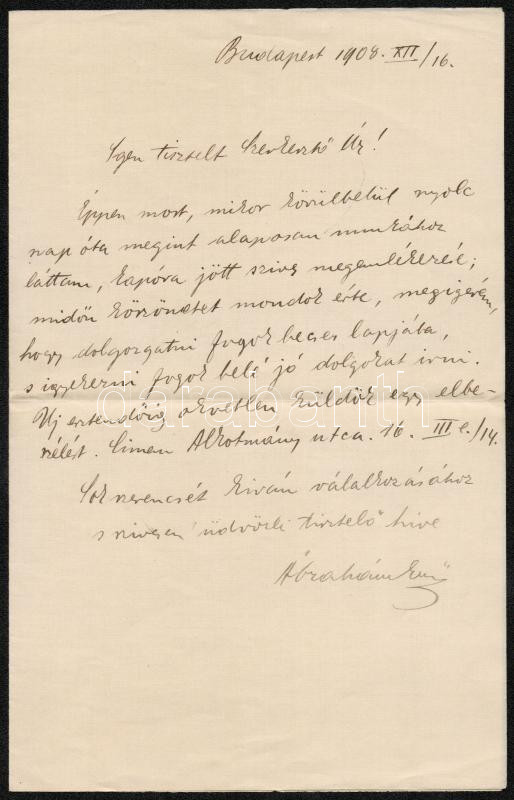 Budapest 1908. XII/16.
Igen tisztelt Szerkesztő Úr!
Éppen most, mikor körülbelül nyolc
nap óta megint alaposan munkához
láttam, kapóra jött szives megemlékezése;
midőn köszönetet mondok érte, megigérem,
hogy dolgozgatni fogok becses lapjába,
s igyekezni fogok belé jó dolgokat irni.
Uj esztendőig okvetlen küldök egy elbe-
szélést. Cimem Alkotmány utca. 16. III e./14.
Sok szerencsét kiván vállalkozásához
s szivesen üdvözli tisztelő hive
Ábrahám Ernő
darabanth